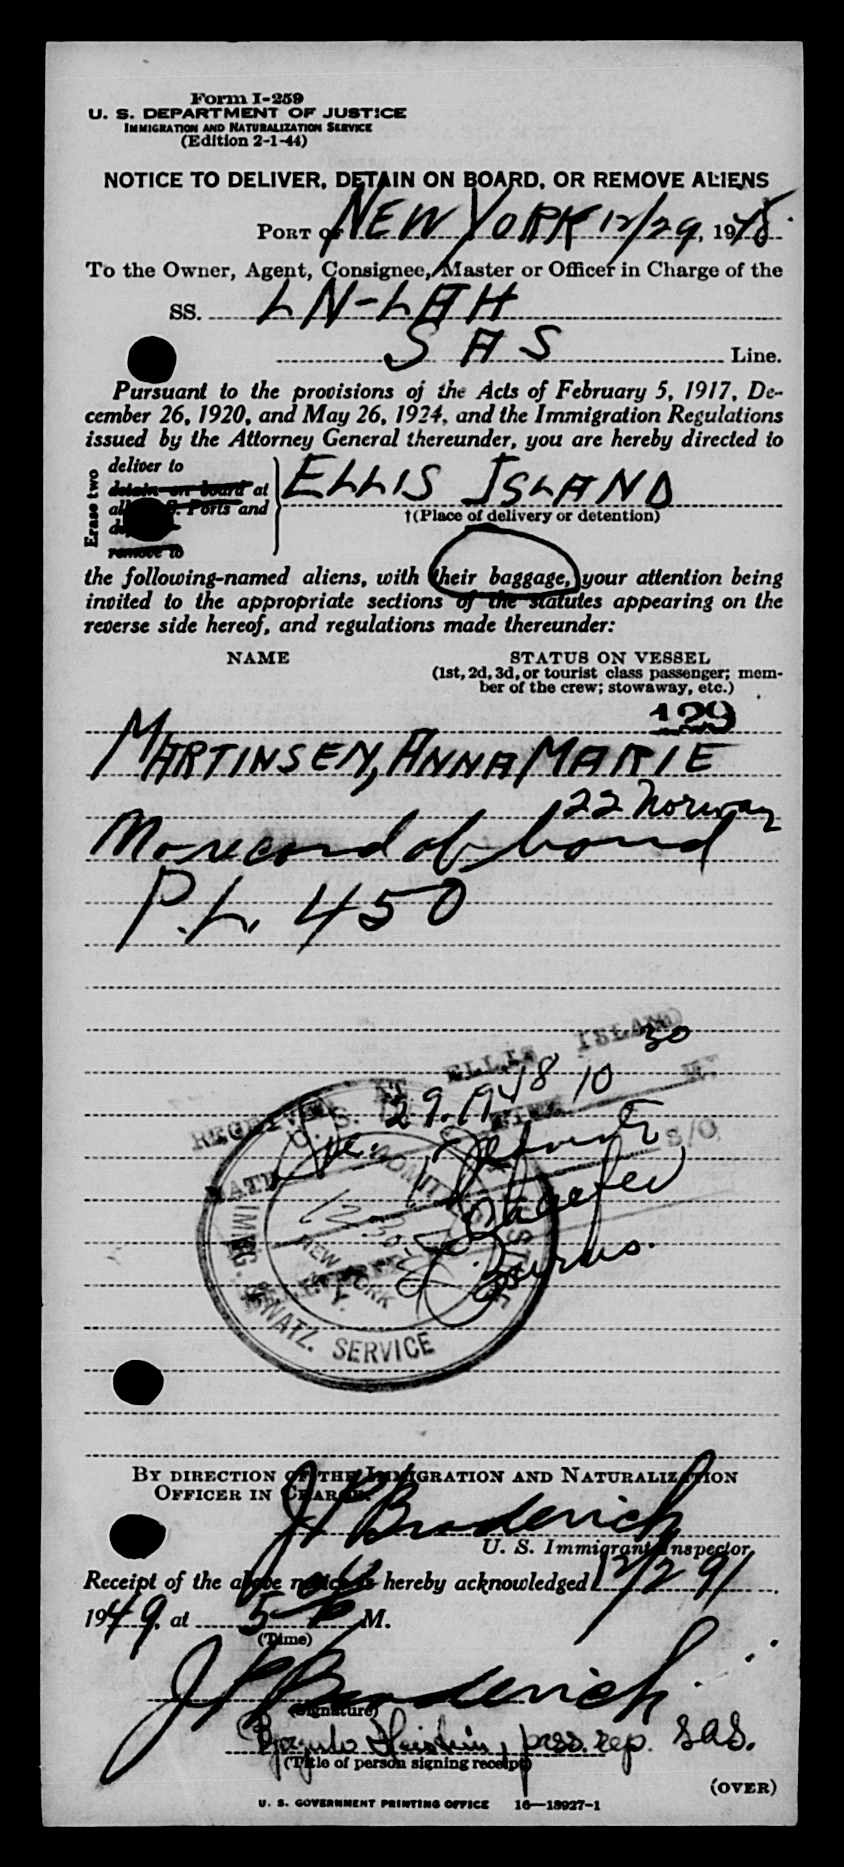 Form I-259
U. S. DEPARTMENT OF JUSTICE
IMMIGRATION AND NATURALIZATION SERVICE
(Edition 2-1-44)
NOTICE TO DELIVER, DETAIN ON BOARD, OR REMOVE ALIENS
PORT OF NEW YORK 12/29, 1948.
To the Owner, Agent, Consignee, Master or Officer in Charge of the
SS. LN-LAH
SAS Line.
Pursuant to the provisions of the Acts of February 5, 1917, De-
cember 26, 1920, and May 26, 1924, and the Immigration Regulations
issued by the Attorney General thereunder, you are hereby directed to
Erase two
deliver to
detain on board at
Ports and
remove to
ELLIS ISLAND
†(Place of delivery or detention)
the following-named aliens, with their baggage, your attention being
invited to the appropriate sections of the statutes appearing on the
reverse side hereof, and regulations made thereunder:
NAME STATUS ON VESSEL
(1st, 2d, 3d, or tourist class passenger; mem-
ber of the crew; stowaway, etc.)
129
MARTINSEN, ANNA MARIE
22 Norway
No record of bond
P.L. 450
RECEIVED AT ELLIS ISLAND
29. 1948 10 30
U. S.
S/O
IMMIG. & NATZ. SERVICE
NEW YORK
N. Y.
BY DIRECTION OF THE IMMIGRATION AND NATURALIZATION
OFFICER IN CHARGE.
J P Broderich
U. S. Immigrant Inspector.
Receipt of the above notice is hereby acknowledged 12/29/
1949, at 5 M.
(Time)
J P Broderich
(Signature)
pass. rep. SAS.
(Title of person signing receipt)
(OVER)
U. S. GOVERNMENT PRINTING OFFICE 16—18927-1